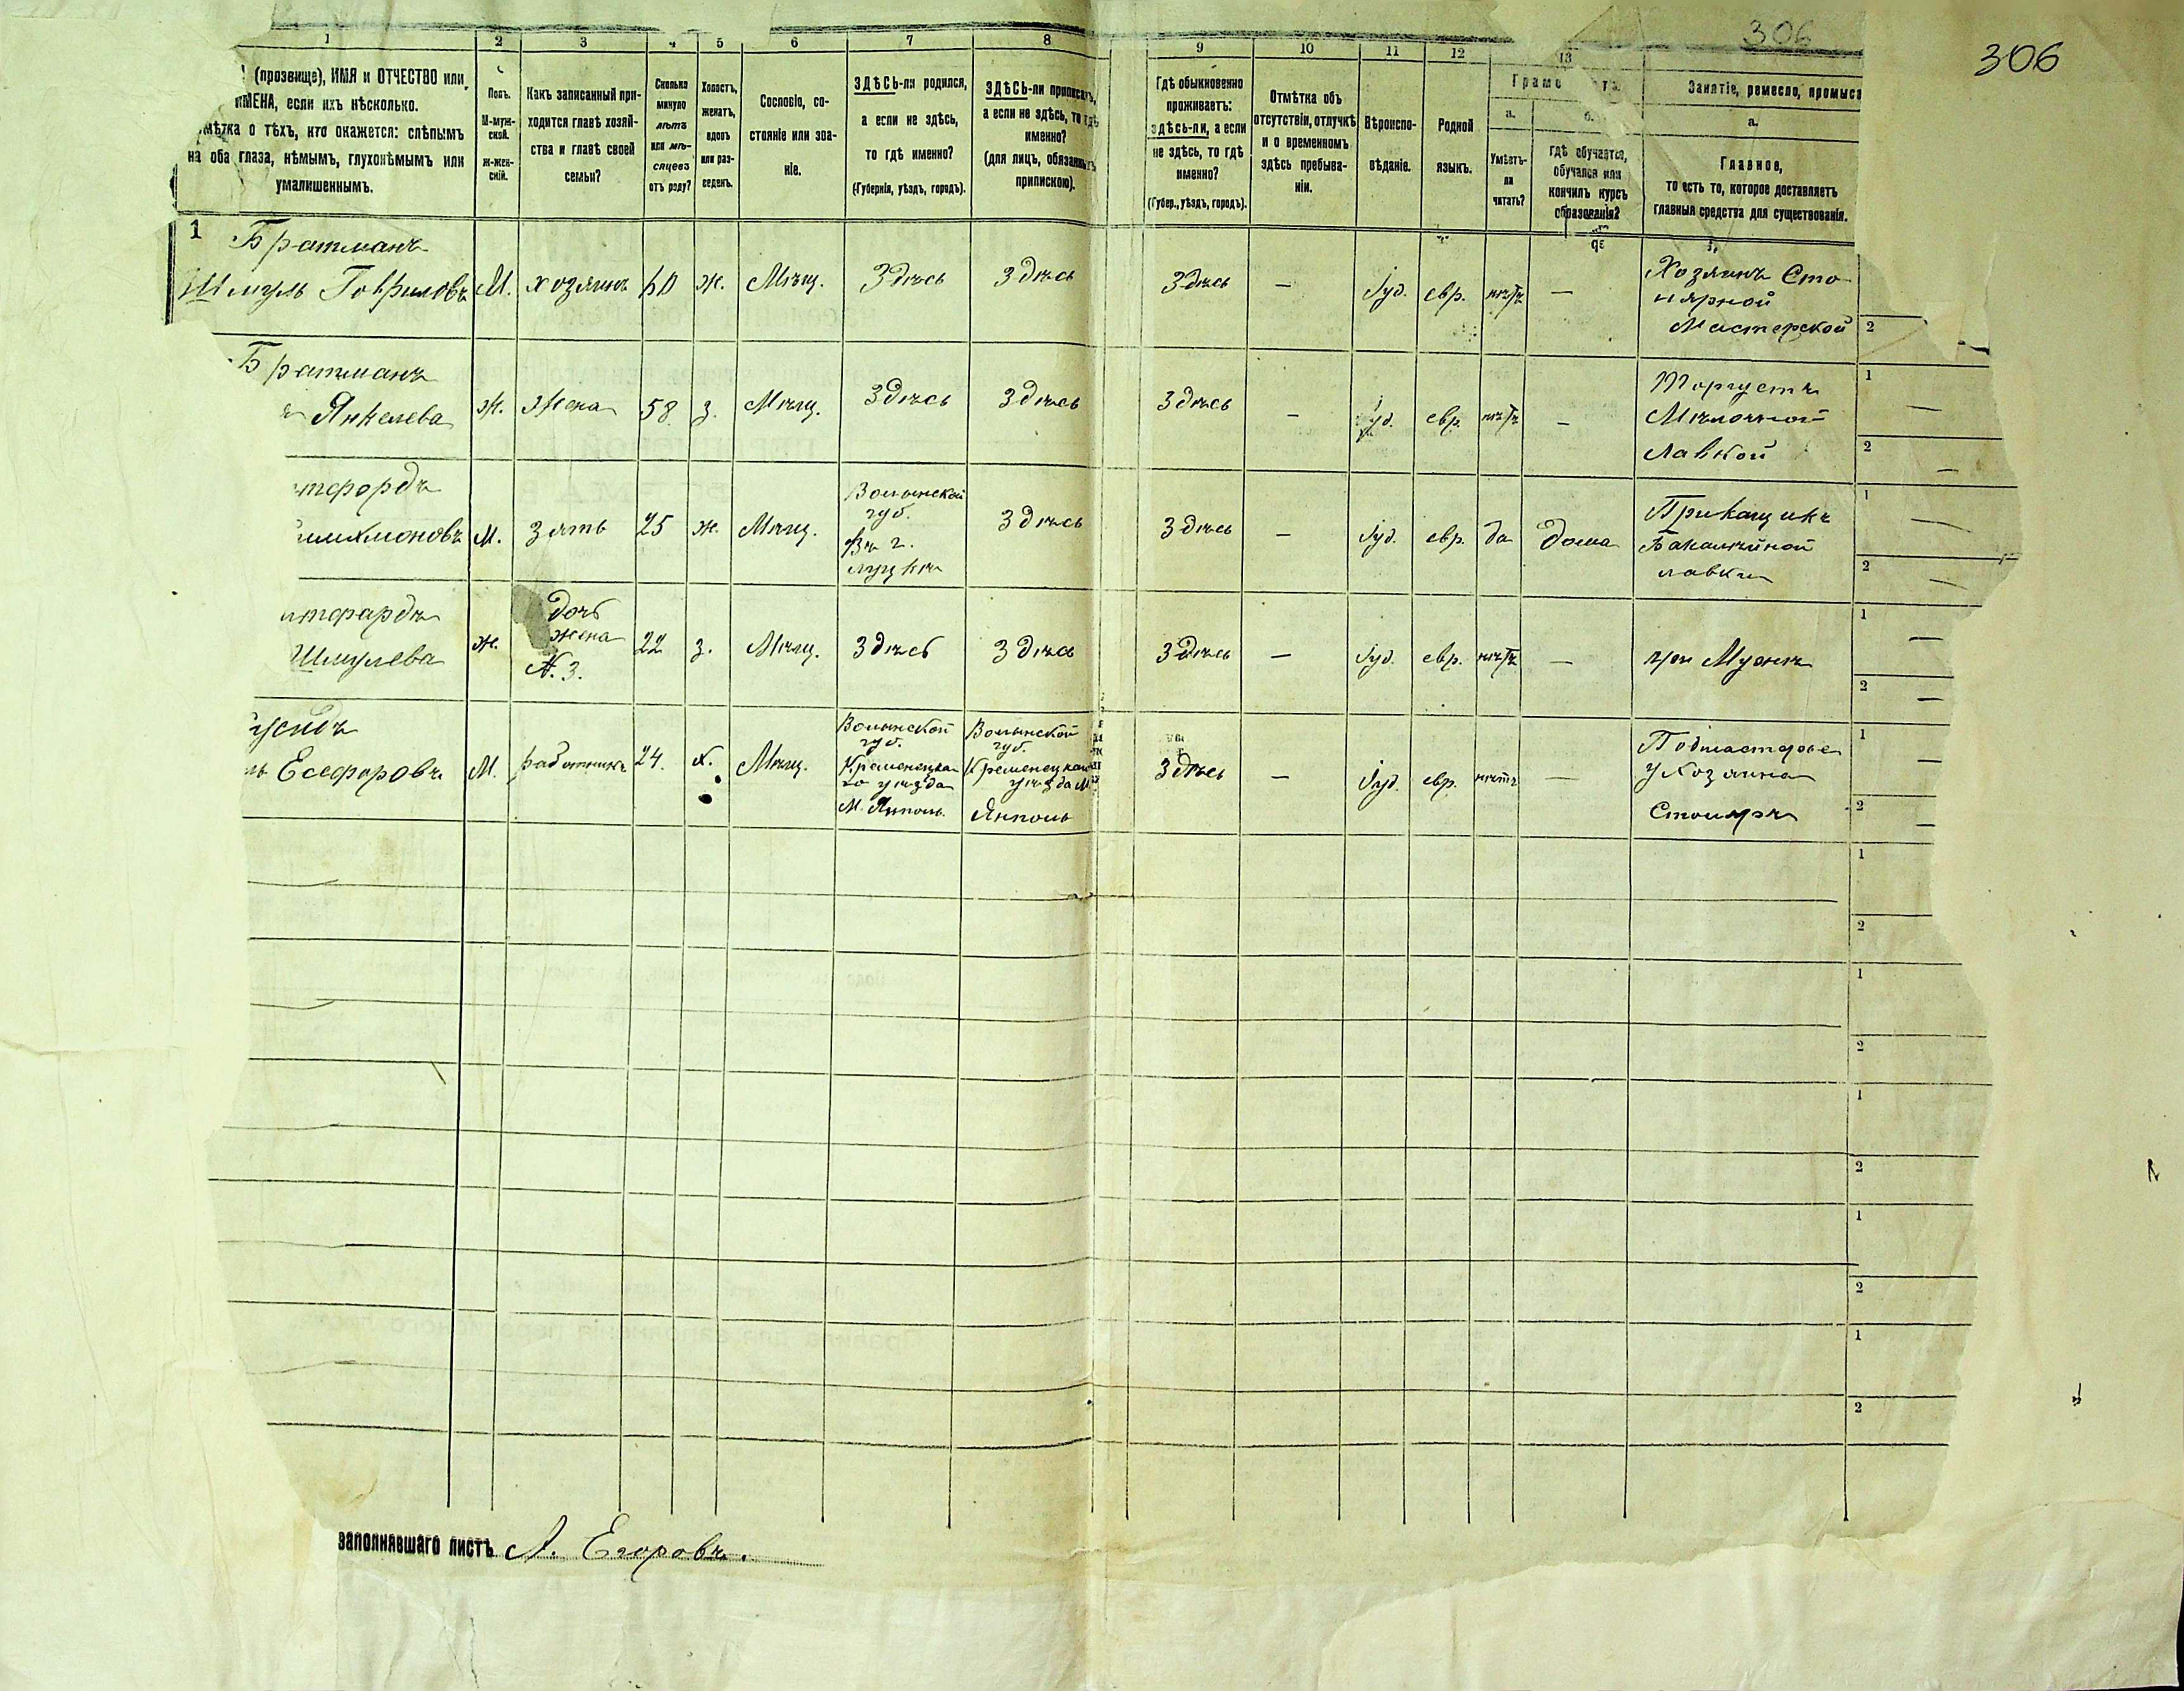 306
306
1
2
3
4
5
6
7
8
9
10
11
12
13
(прозвище), ИМЯ и ОТЧЕСТВО или
ИМЕНА, если ихъ нѣсколько.
мѣтка о тѣхъ, кто окажется: слѣпымъ
на оба глаза, нѣмымъ, глухонѣмымъ или
умалишеннымъ.
Полъ.
М-муж-
ской.
Ж-жен-
скій.
Какъ записанный при-
ходится главѣ хозяй-
ства и главѣ своей
семьи?
Сколько
минуло
лѣтъ
или мѣ-
сяцевъ
отъ роду?
Холостъ,
женатъ,
вдовъ
или раз-
веденъ.
Сословіе, со-
стояніе или зва-
ніе.
ЗДѢСЬ-ли родился,
а если не здѣсь,
то гдѣ именно?
(Губернія, уѣздъ, городъ).
ЗДѢСЬ-ли приписанъ,
а если не здѣсь, то гдѣ
именно?
(для лицъ, обязанныхъ
припискою).
Гдѣ обыкновенно
проживаетъ:
здѣсь-ли, а если
не здѣсь, то гдѣ
именно?
(Губер., уѣздъ, городъ).
Отмѣтка объ
отсутствіи, отлучкѣ
и о временномъ
здѣсь пребыва-
ніи.
Вѣроиспо-
вѣданіе.
Родной
языкъ.
Грамо та.
а.
Умѣетъ-
ли
читать?
б.
гдѣ обучается,
обучался или
кончилъ курсъ
образованія?
Занятіе, ремесло, промысл
а.
Главное,
то есть то, которое доставляетъ
главныя средства для существованія.
1
Братманъ
Шмуль Гавриловъ
М.
хозяинъ
60
ж.
Мѣщ.
Здѣсь
Здѣсь
Здѣсь
—
Іуд.
евр.
нѣтъ
—
Хозяинъ Сто-
лярной
Мастерской
2
Братманъ
Янкелева
Ж.
Жена
58
з.
Мѣщ.
Здѣсь
Здѣсь
Здѣсь
—
Іуд.
евр.
нѣтъ
—
Торгуетъ
Мѣлочной
Лавкой
1
—
2
—
М.
зять
25
ж.
Мѣщ.
Волынской
губ.
Въ г.
Луцкѣ
Здѣсь
Здѣсь
—
Іуд.
евр.
да
дома
Прикащикъ
Бакалейной
лавки
1
—
2
—
Шмулева
ж.
дочь
жена
№ 3.
22
з.
Мѣщ.
Здѣсь
Здѣсь
Здѣсь
—
Іуд.
евр.
нѣтъ
—
при Мужѣ
1
—
2
—
М.
работникъ
24.
х.
Мѣщ.
Волынской
губ.
Кременецка-
го уѣзда
М. Ямполь
Волынской
губ.
Кременецкаго
уѣзда М.
Ямполь
Здѣсь
—
Іуд.
евр.
нѣтъ
—
Подмастерье
у Хозяина
Столяръ
1
—
2
—
1
2
1
2
1
2
1
2
1
2
заполнявшаго листъ А. Егоровъ.